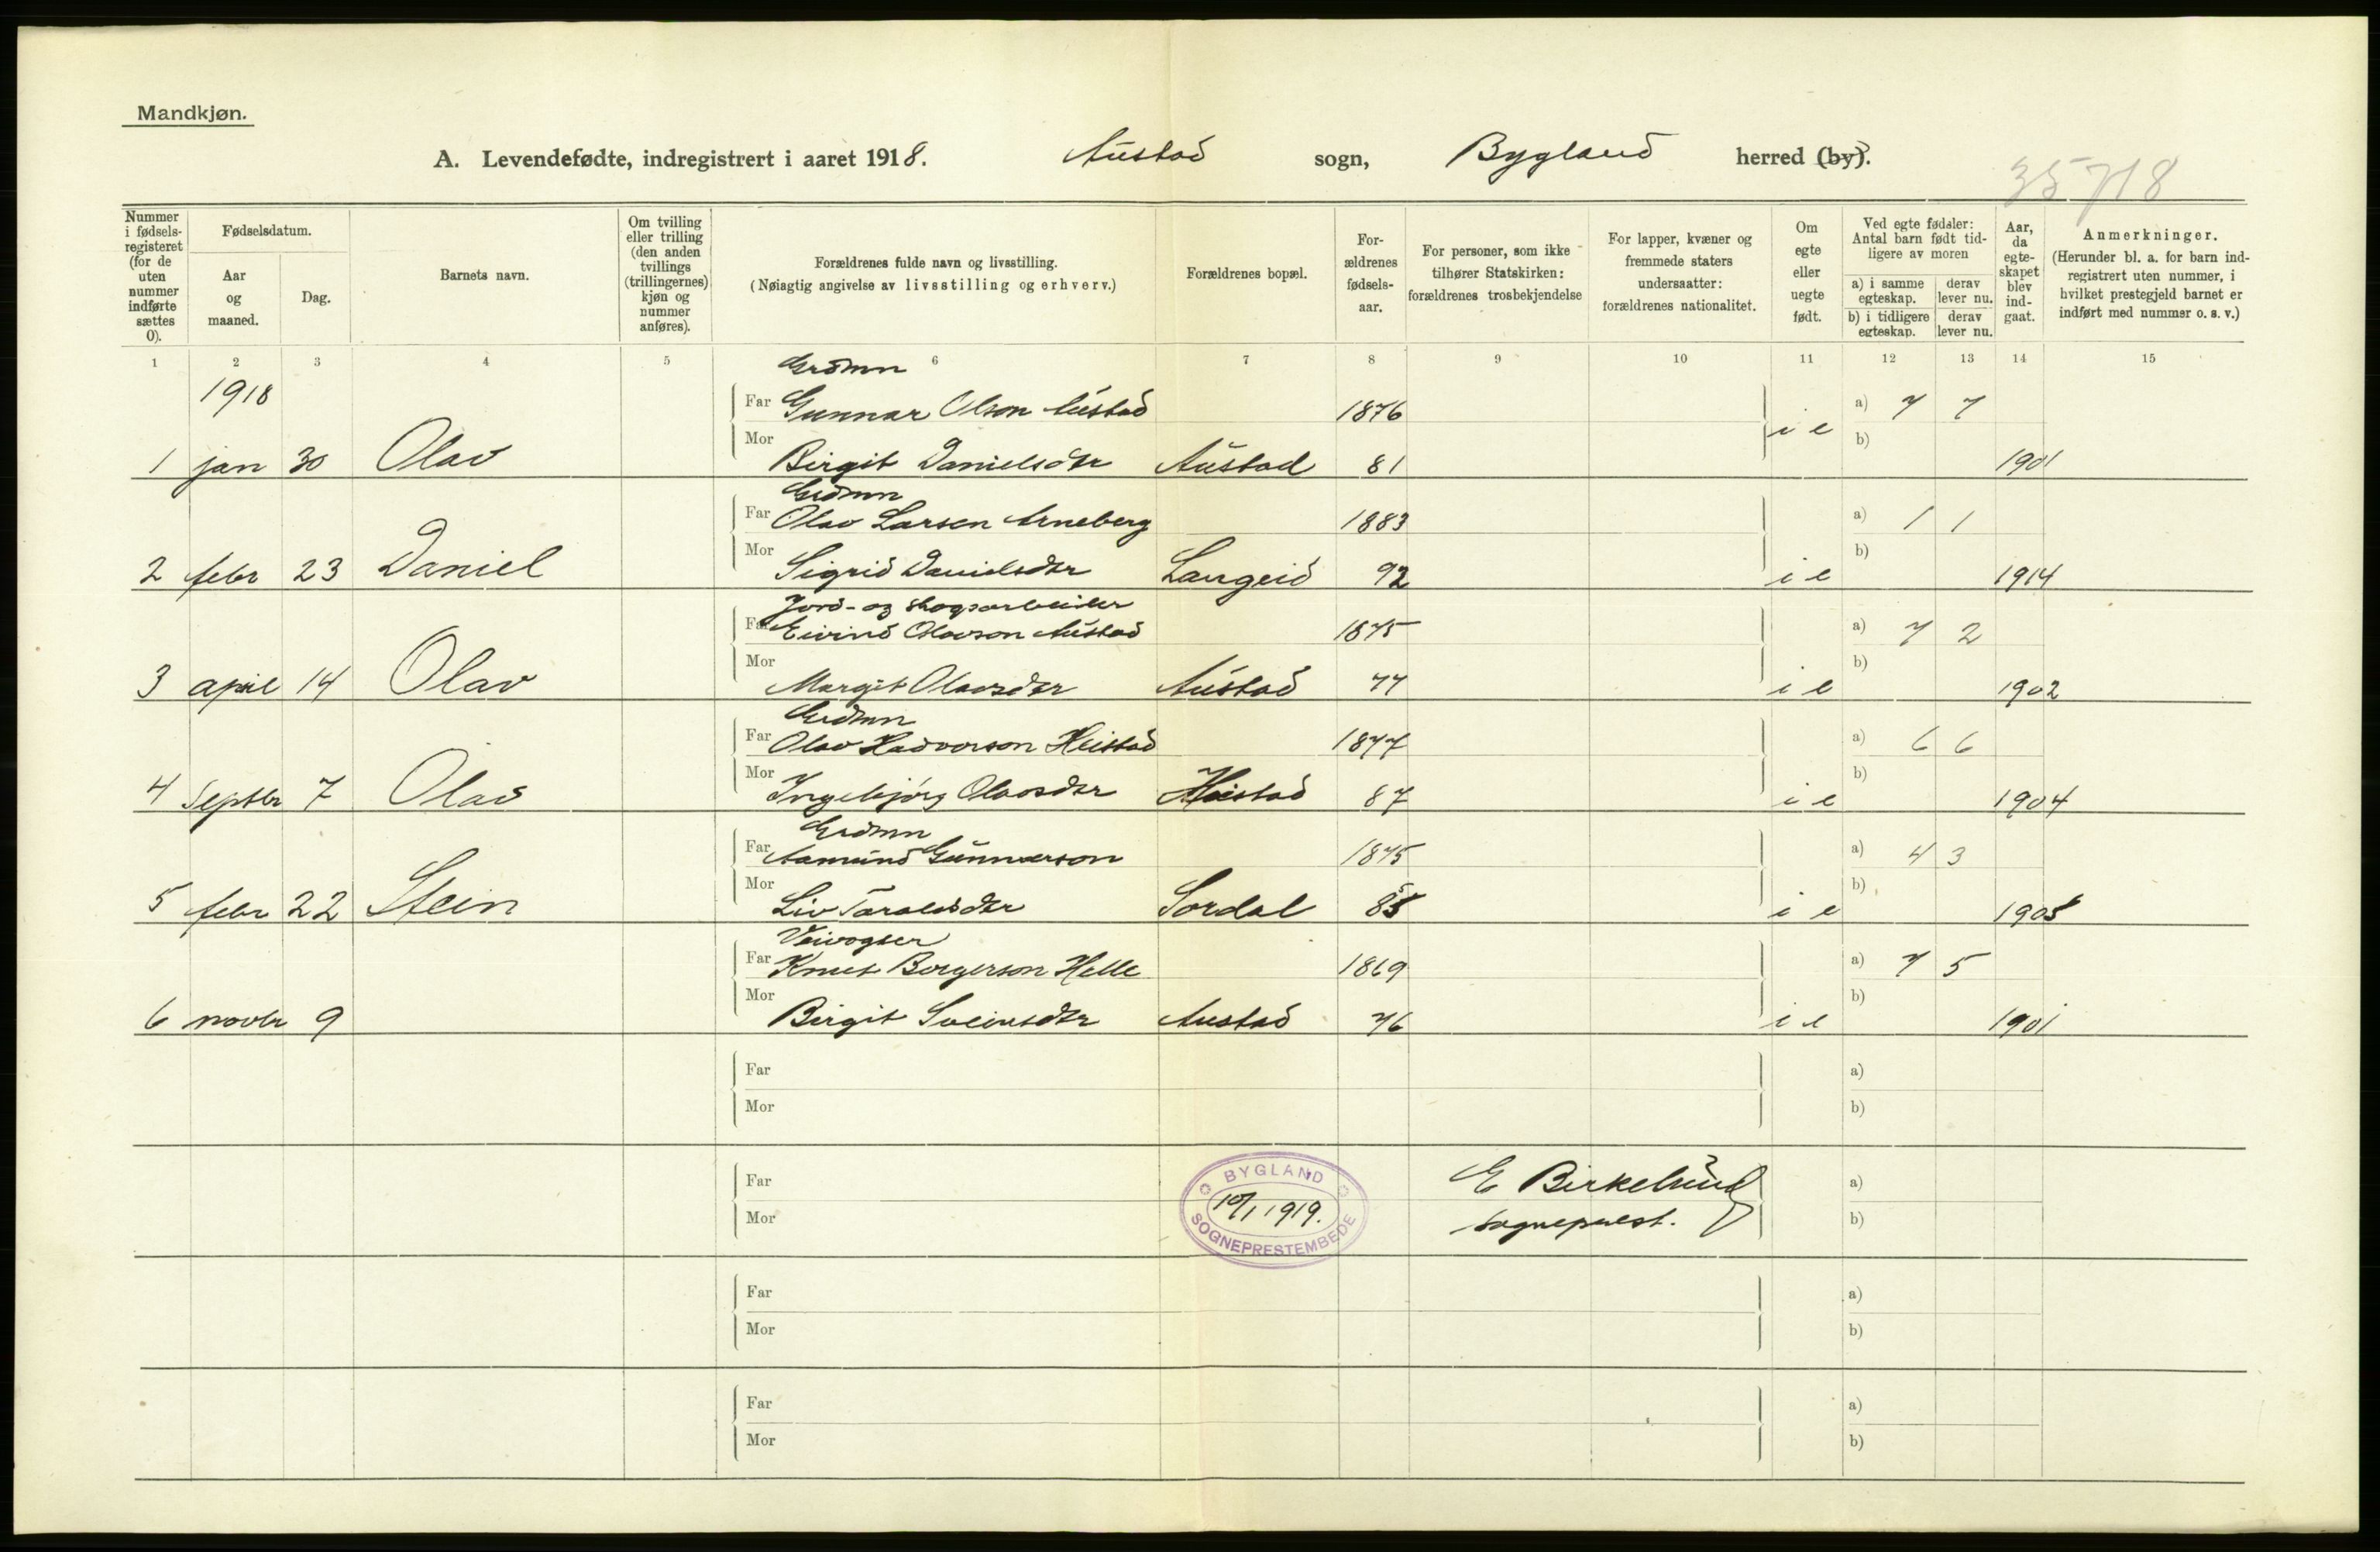 Mandkjøn.
A. Levendefødte, indregistrert i aaret 1918. Austad sogn, Bygland herred (by).
35718
Nummer i fødselsregisteret (for de uten nummer indførte sættes 0).
Fødselsdatum.
Aar og maaned.
Dag.
Barnets navn.
Om tvilling eller trilling (den anden tvillings (trillingernes) kjøn og nummer anføres).
Forældrenes fulde navn og livsstilling.
(Nøiagtig angivelse av livsstilling og erhverv.)
Forældrenes bopæl.
Forældrenes fødselsaar.
For personer, som ikke tilhører Statskirken: forældrenes trosbekjendelse
For lapper, kvæner og fremmede staters undersaatter: forældrenes nationalitet.
Om egte eller uegte født.
Ved egte fødsler: Antal barn født tidligere av moren
a) i samme egteskap. derav lever nu.
b) i tidligere egteskap. derav lever nu.
Aar, da egteskapet blev indgaat.
Anmerkninger.
(Herunder bl. a. for barn indregistrert uten nummer, i hvilket prestegjeld barnet er indført med nummer o. s. v.)
1 2 3 4 5 6 7 8 9 10 11 12 13 14 15
1918
Grdmn
Far Gunnar Olson Austad 1876 a) 7 7
1 jan 30 Olav Mor Birgit Danielsdtr Austad 81 i e b) 1901
Grdmn
Far Olav Larsen Arneberg 1883 a) 1 1
2 febr 23 Daniel Mor Sigrid Danielsdtr Langeid 92 i e b) 1914
Jord- og skogsarbeider
Far Eivind Olavson Austad 1875 a) 7 2
3 april 14 Olav Mor Margit Olavsdtr Austad 77 i e b) 1902
Grdmn
Far Olav Hadvorson Heistad 1877 a) 6 6
4 Septbr 7 Olav Mor Ingebjörg Olavsdtr Heistad 87 i e b) 1904
Grdmn
Far Aamund Gunnarson 1875 a) 4 3
5 febr 22 Stein Mor Liv Taraldsdtr Sordal 85 i e b) 1905
Veivogter
Far Knut Borgerson Helle 1869 a) 7 5
6 novbr 9 Mor Birgit Sveinsdtr Austad 76 i e b) 1901
Far a)
Mor b)
Far a)
Mor b)
BYGLAND
10/1 1919.
SOGNEPRESTEMBEDE
E Birkelund
sogneprest.
Far a)
Mor b)
Far a)
Mor b)